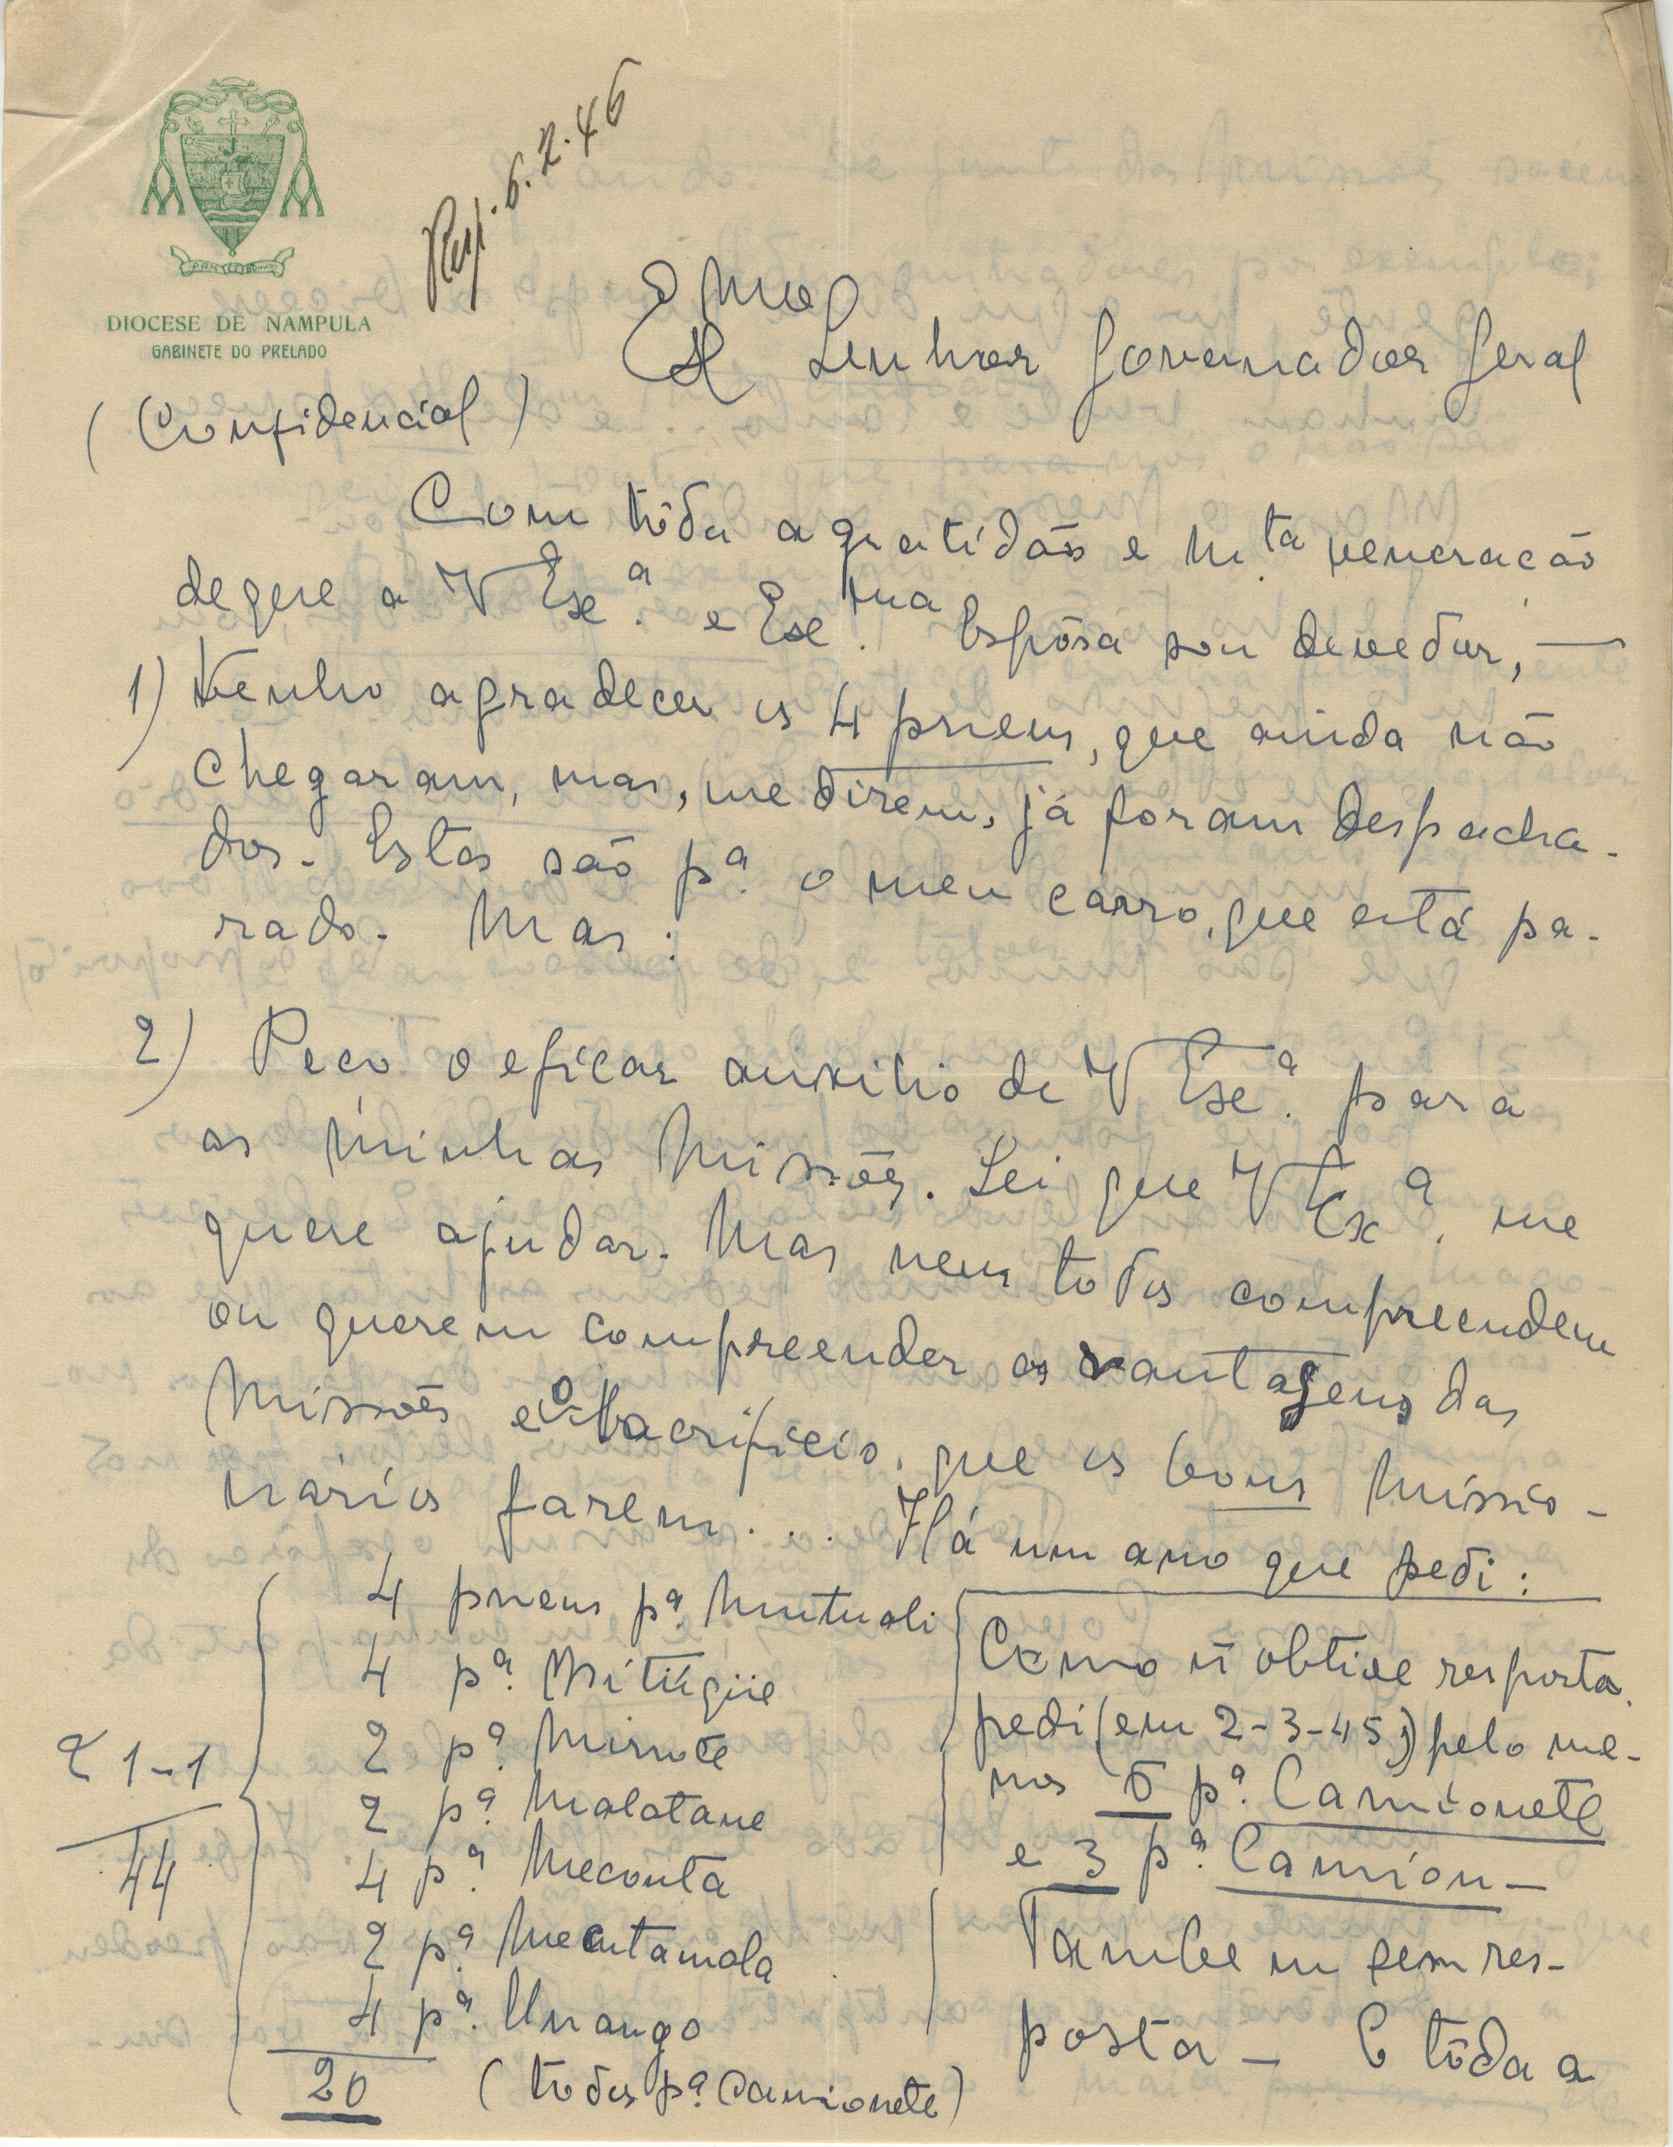 DIOCESE DE NAMPULA
GABINETE DO PRELADO
Resp. 6.2.46
Exmo Senhor Governador Geral
(Confidencial)
Com tôda a gratidão e m.ta veneração
de que a V Exc.a e Exc.ma Espôsa sou devedor, —
1) Venho agradecer os 4 pneus, que ainda não
chegaram, mas, me dizem, já foram despacha-
dos. Estes são p.a o meu carro, que está pa-
rado. Mas:
2) Peço o eficaz auxilio de V Exc.a para
as minhas Missões. Sei que V Ex.a me
quere ajudar. Mas nem todos compreendem
ou querem compreender as vantagens das
Missões e o sacrificio, que os bons Missio-
nários fazem... Há um ano que pedi:
4 pneus p.a Mutuali
4 p.a Mitúgüe
2 p.a Mirrote
2 p.a Malatane
4 p.a Meconta
2 p.a Mecutamala
4 p.a Unango
20 (todos p.a camionete)
21-1
44
Como ñ obtive resposta
pedi (em 2-3-45) pelo me-
nos 6 p.a Camionete
e 3 p.a Camion —
Tambem sem res-
posta — E tôda a